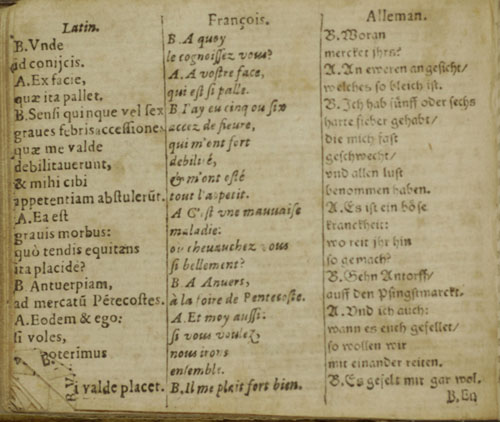 Latin.
B.Vnde
ad conijcis.
A.Ex facie,
quæ ita pallet.
B.Sensi quinque vel sex
graues febris accessiones
quæ me valde
debilitauerunt,
& mihi cibi
appetentiam abstulerūt.
A.Ea est
grauis morbus:
quò tendis equitans
ita placidè?
B Antuerpiam,
ad mercatū Pētecostes.
A.Eodem & ego:
si voles,
poterimus
valde placet.
François.
B.A quoy
le cognoissez vous?
A.A vostre face,
qui est si palle.
B.I'ay eu cinq ou six
accez de fieure,
qui m'ont fort
debilité,
& m'ont osté
tout l'appetit.
A C'est vne mauuaise
maladie:
ou cheuauchez vous
si bellement?
B A Anuers,
à la foire de Pentecoste.
A.Et moy aussi:
si vous voulez,
nous irons
ensemble.
B.Il me plait fort bien.
Alleman.
B.Woran
mercket jhrs?
A.An eweren angesicht/
welches so bleich ist.
B.Ich hab fünff oder sechs
harte fieber gehabt/
die mich fast
geschwecht/
vnd allen lust
benommen haben.
A.Es ist ein böse
kranckheit:
wo reit jhr hin
so gemach?
B.Gehn Antorff/
auff den Pfingstmarckt.
A.Vnd ich auch:
wann es euch gefellet/
so wollen wir
mit einander reiten.
B.Es gefelt mir gar wol.
B.En